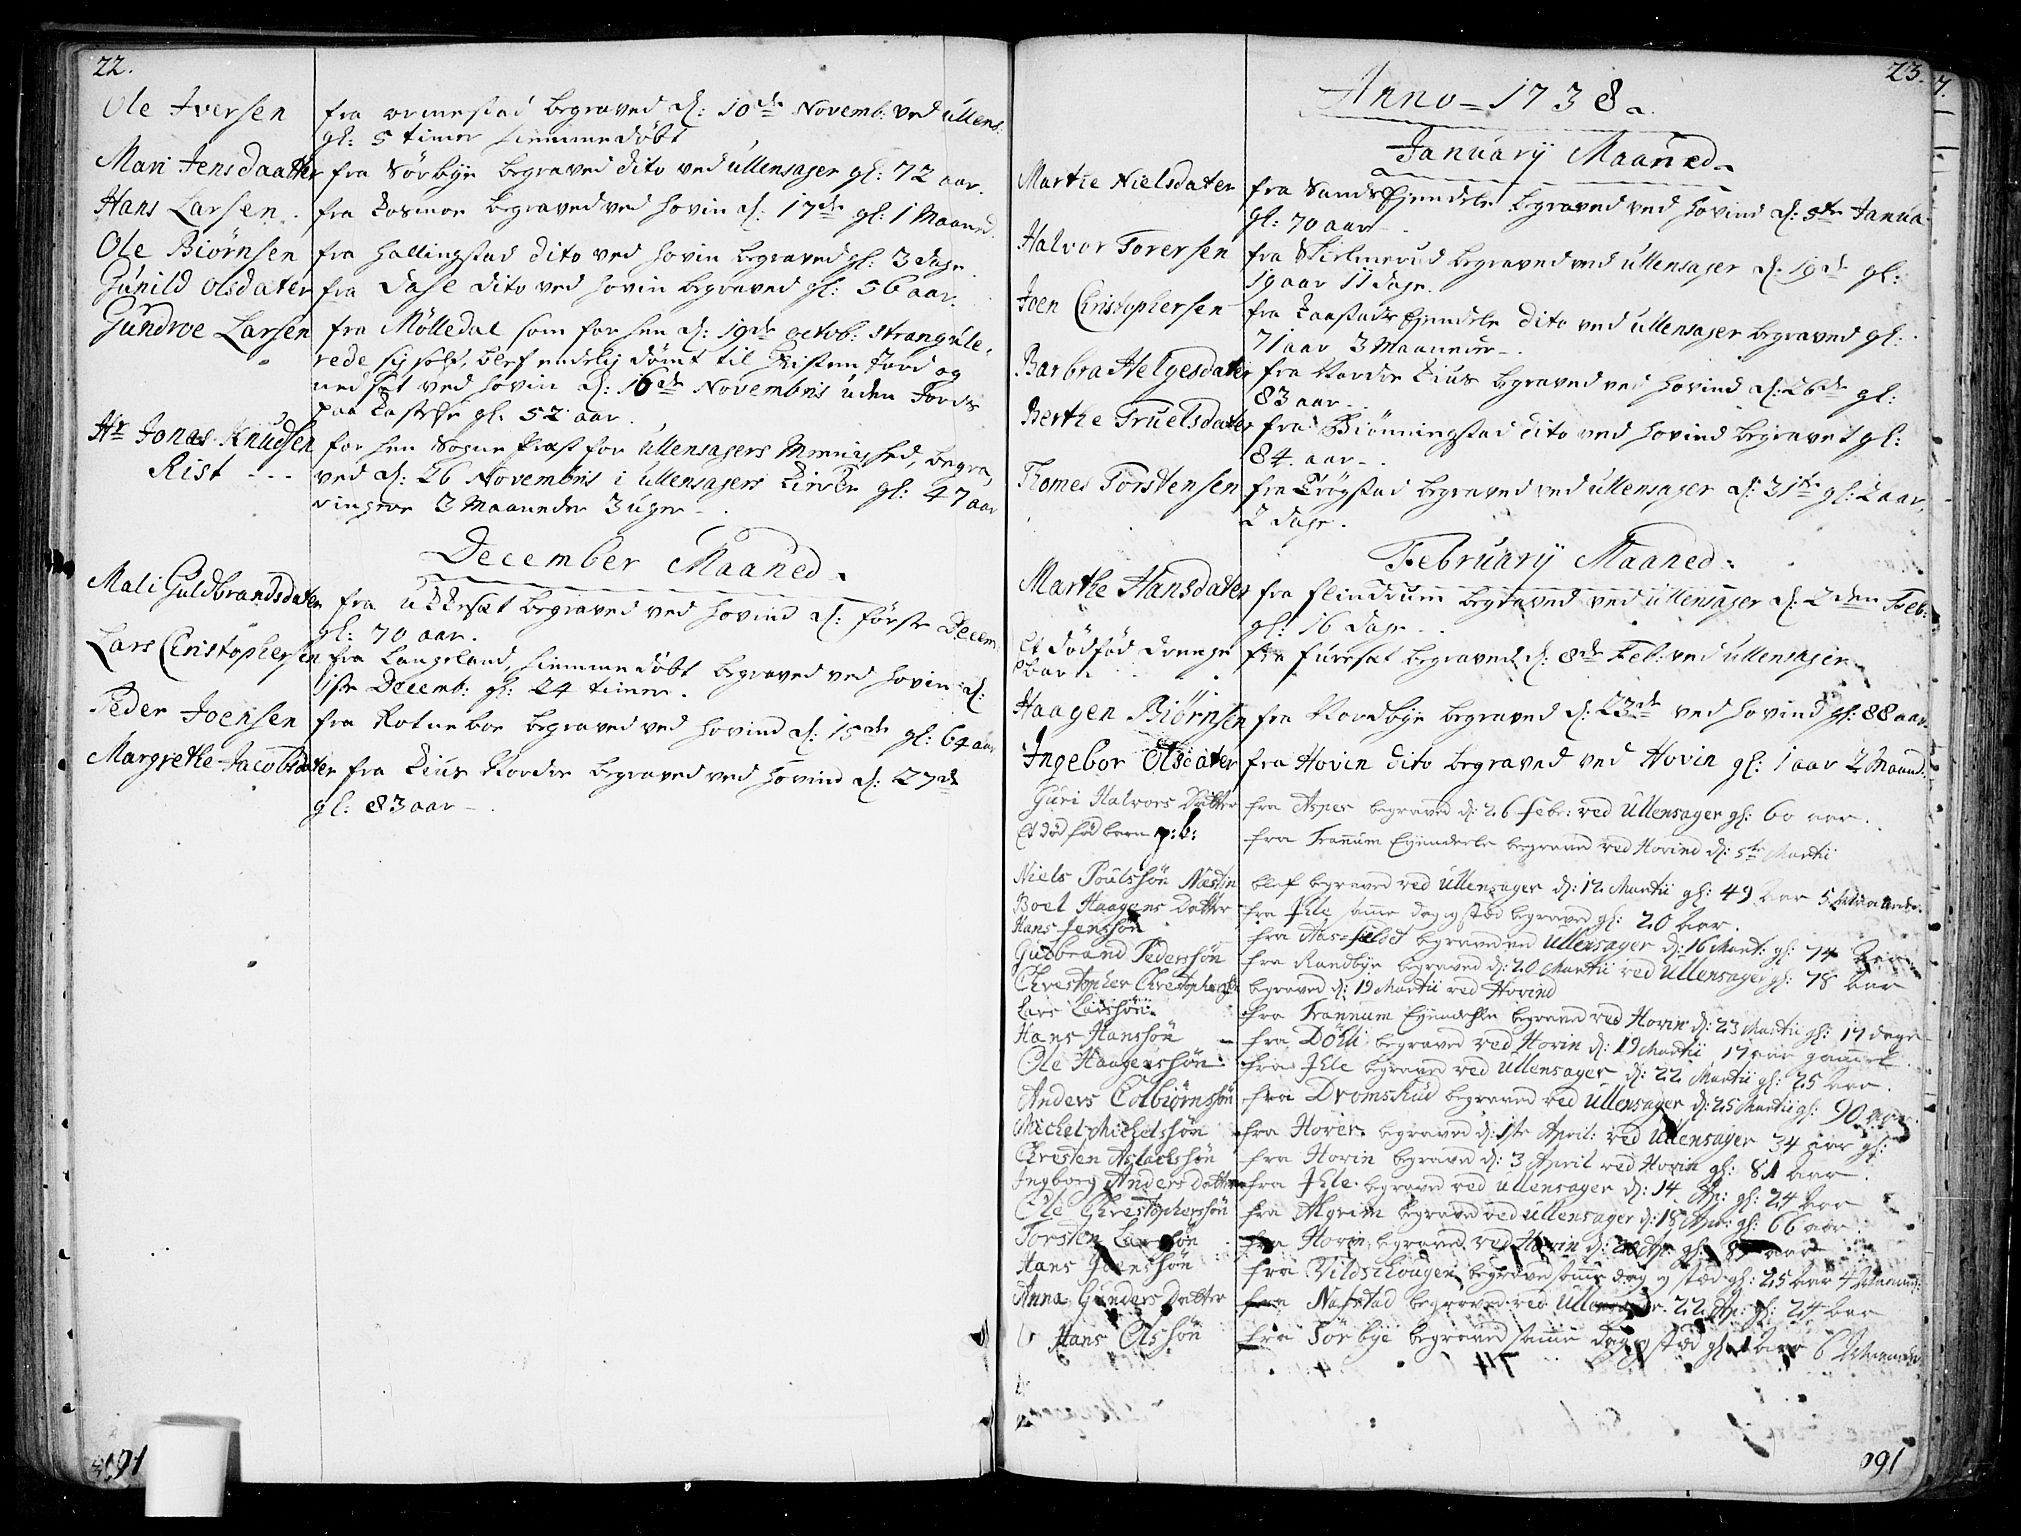 22.
Ole Iversen fra Ormestad begraved d: 10de Novemb: ved Ullens.
gl: 5 timer hiemmedøbt
Mari Jensdaatter fra Sørbye begraved dito ved Ullensager gl: 72 aar.
Hans Larsen fra begraved ved Hovin d: 17de gl: 1 Maaned.
Ole Biørnsen fra Hallingstad dito ved Hovin begraved gl: 3 dage.
Gunild Olsdater fra Dahl dito ved Hovin begraved gl: 56 aar.
Gudroe Larsen fra Mølledal som for hen d: 19de Octob: strangule-
rede sig self, blef endelig dømt til Kristen Jord og
ned sat ved Hovin d: 16de Novembris uden Jords
paa Kastelse gl. 52 aar.
Hr Jonas Knudsen for hen Sogne Præst for Ullensagers Menighed, begra-
Rist - - - ved d: 26 Novembris i Ullensagers Kircke gl: 47 aar
ringere 3 Maaneder 3 uger -.
December Maaned.
Mali Guldbrandsdater fra begraved ved Hovind d: første Decem
gl: 70 aar.
Lars Christophersen fra Langeland, hiemmedøbt begraved ved Hovin d:
1ste Decemb: gl: 24 timer.
Peder Joensen fra Rotneboe begraved ved Hovind d: 15de gl: 64 aar
Margrethe Jacobsdater fra Kius Nordre begraved ved Hovind d: 27de
gl: 83 aar -.
1691
23.
Anno - 1738.
Januarij Maaned.
Marthe Nielsdater fra Sands Eyendele begraved ved Hovind d: 5te Janua
gl: 70 aar -.
Halvor Torersen fra begraved ved Ullensager d: 19de gl:
19 aar 11 dage.
Joen Christophersen fra Eyendele dito ved Ullensager begraved gl:
71 aar 3 Maaneder -.
Barbra Helgesdater fra Nordre Kius begraved ved Hovind d: 26de gl:
83 aar -.
Berthe Truelsdater fra Biønningstad dito ved Hovind begravet gl:
84. aar -.
Thomes Torstensen fra Trøgstad begraved ved Ullensager d: 31te gl: 2 aar,
2 dage.
February Maaned.
Marthe Hansdater fra Flindrum begraved ved Ullensager d: 2den Feb:
gl: 16 dage -.
Et dødfød drenge fra Furuset begraved d: 8de Feb: ved Ullensager
barn.
Haagen Biørnsen fra Nordbye begraved d: 23de ved Hovind gl: 88 aar.
Ingebor Olsdater fra Hovin dito begraved ved Hovin gl: 1 aar 2 Maand:
Guri Halvors Datter fra Asper begraved d: 26 Febr: ved Ullensager gl: 60 aar.
Et død fød barn p:b: fra Tranum Eyenderle begraved ved Hovind d: 5te Martii
Niels Poulssøn Næstin blef begraved ved Ullensager d: 12 Martii gl: 49 aar 5 Maaneder.
Boel Haagens Datter fra Ihle samme dag og stæd begraved gl: 20 aar.
Hans Jenssøn fra Aas-feldet begraved ved Ullensager d: 16 Mart: gl: 74 aar
Gulbrand Pederssøn fra Randbye begraved d: 20 Martii ved Ullensager gl: 78 aar
Christopher Christopherssøn begraved d: 19 Martii ved Hovind
Lars Larssøn fra Trannum Eyendehle begraved ved Hovin d: 23 Martii gl: 17 dage
Hans Hanssøn fra Døhli begraved ved Hovin d: 19 Martii 17 aar gammel
Ole Haagenssøn fra Ihle begraved ved Ullensager d: 22 Martii gl: 25 aar.
Anders Colbiørnssøn fra Dromshud begraved ved Ullensager d: 25 Martii gl: 90 aar
Michel Michelssøn fra Hover begraved d: 1ste April: ved Ullensager 34 aar gl:
Christen Aslachssøn fra Hovin begraved d: 3 April ved Hovin gl: 81 aar.
Ingborg Anders Datter fra Ihle begraved ved Ullensager d: 14 Ap: gl: 24 aar
Ole Christopherssøn fra Algrim begraved ved Ullensager d: 18 Apr: gl: 66 aar
Torsten Larssøn fra Hovin begraved ved Hovin d: 20 Ap: gl: aar
Hans Joenssøn fra Vildschougen begraved samme dag og stæd gl: 25 aar 4 Maaned:
Anna Gunders Datter fra Nafstad begraved ved Ullensager 22 Ap: gl: 24 aar
Hans Olssøn fra Tørbye begraved samme dag og stæd gl: 1 aar 6 Maaneder